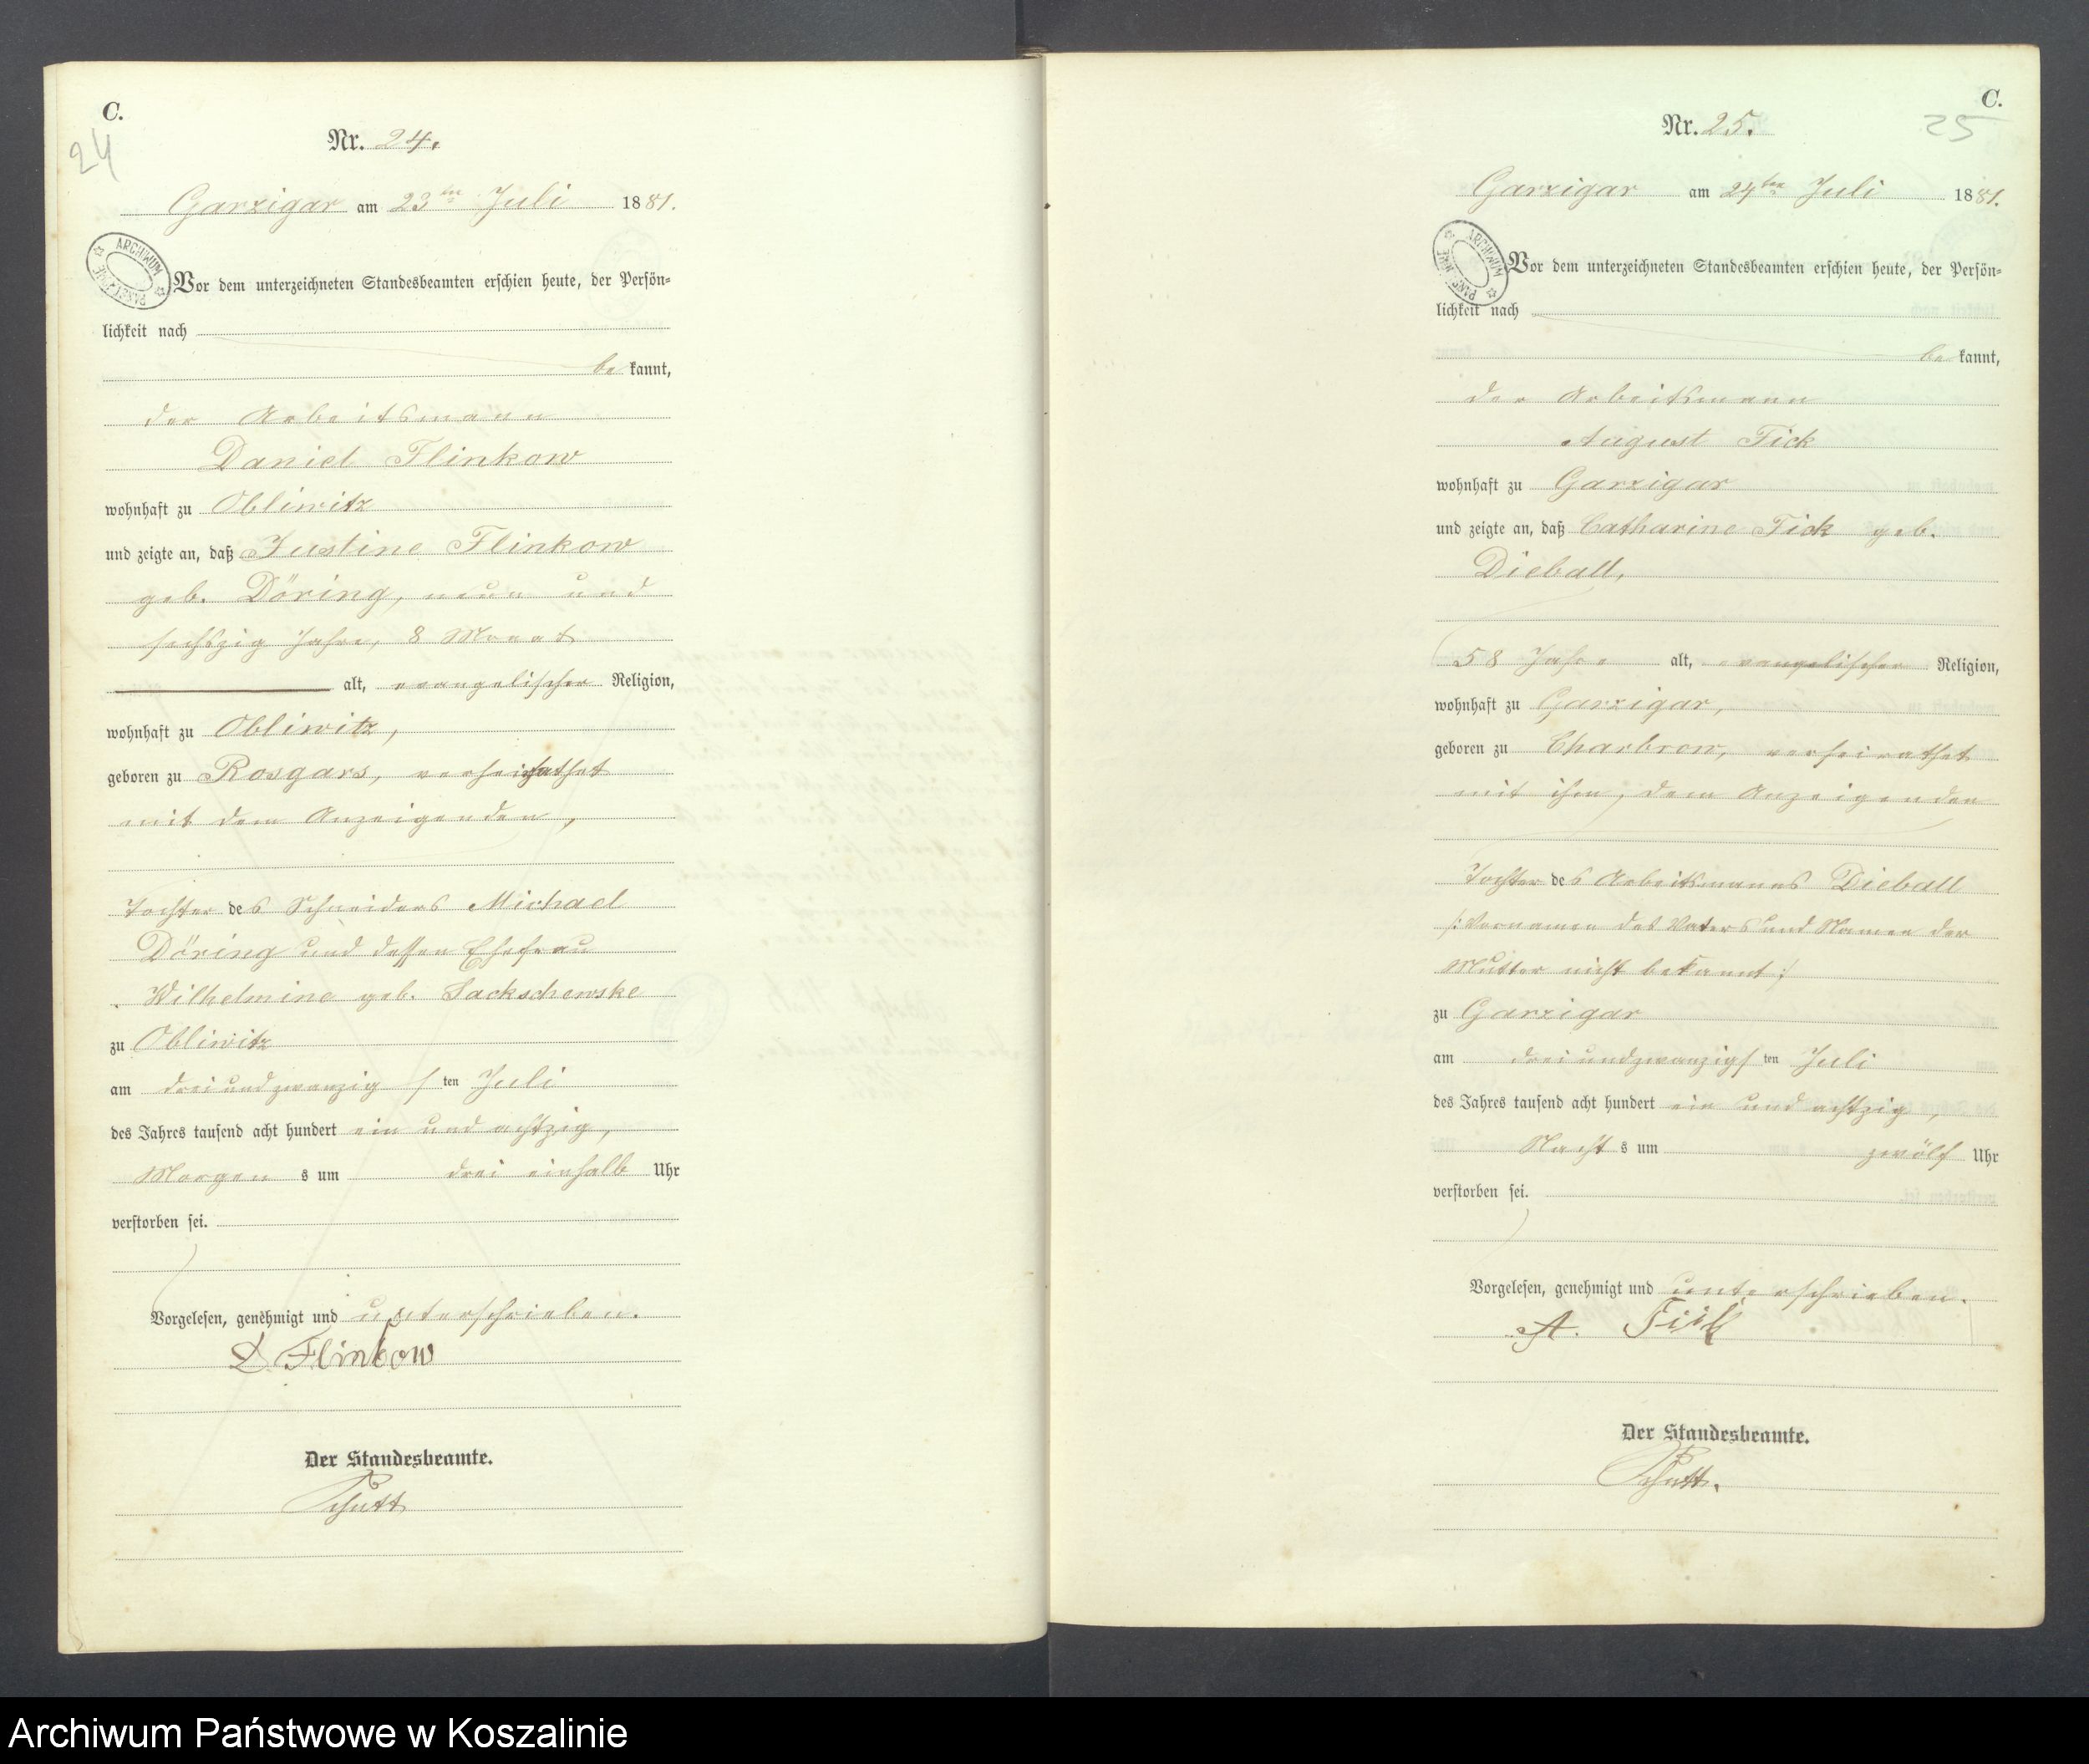 C.
24
Nr. 24.
Garzigar am 23ten Juli 1881.
ARCHIWUM PAŃSTWOWE
Vor dem unterzeichneten Standesbeamten erschien heute, der Persön=
lichkeit nach
be kannt,
der Arbeitsmann
Daniel Flinkow
wohnhaft zu Obliwitz
und zeigte an, daß Justine Flinkow
geb. Döring, neun und
sechszig Jahre, 8 Monat
alt, evangelischer Religion,
wohnhaft zu Obliwitz,
geboren zu Rosgars, verheirathet
mit dem Anzeigenden,
Tochter des Schneiders Michael
Döring und dessen Ehefrau
Wilhelmine geb. Sackschewske
zu Obliwitz
am dreiundzwanzig sten Juli
des Jahres tausend acht hundert ein und achtzig,
Morgen s um drei einhalb Uhr
verstorben sei.
Vorgelesen, genehmigt und unterschrieben.
D Flinkow
Der Standesbeamte.
Schutt
C.
25
Nr. 25.
Garzigar am 24ten Juli 1881.
ARCHIWUM PAŃSTWOWE
Vor dem unterzeichneten Standesbeamten erschien heute, der Persön=
lichkeit nach
be kannt,
der Arbeitsmann
August Fick
wohnhaft zu Garzigar
und zeigte an, daß Catharine Fick geb.
Dieball,
58 Jahre alt, evangelischer Religion,
wohnhaft zu Garzigar,
geboren zu Charbrow, verheirathet
mit ihm, dem Anzeigenden
Tochter des Arbeitsmanns Dieball
/: Vornamen des Vaters und Namen der
Mutter nicht bekannt :/
zu Garzigar
am dreiundzwanzigs ten Juli
des Jahres tausend acht hundert ein und achtzig,
Nacht s um zwölf Uhr
verstorben sei.
Vorgelesen, genehmigt und unterschrieben.
A. Fick
Der Standesbeamte.
Schutt.
Archiwum Państwowe w Koszalinie